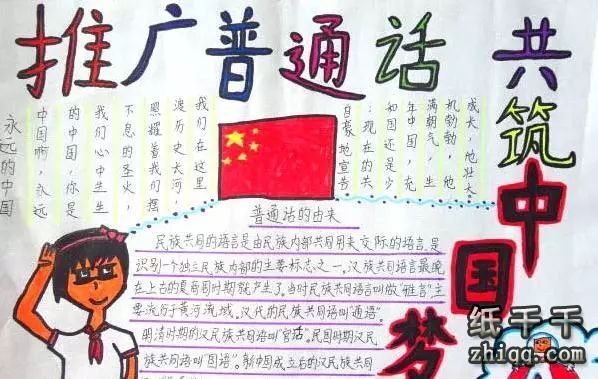 推广普通话
共筑中国梦
永远的中国
中国啊，永远
的中国，你是
我们心中生生
不息的圣火，
照耀着我们，摆
渡历史长河，
我们在这里
自豪地宣告
：现在的共
和国还是少
年中国，充
满朝气，生
机勃勃，他
成长，他壮大
普通话的由来
民族共同的语言是由民族内部共同用来交际的语言，是
识别一个独立民族内部的主要标志之一。汉族共同语言最晚
在上古的夏商周时期就产生了。当时民族共同语言叫做“雅言”，主
要流行于黄河流域，汉代的民族共同语叫“通语”。
明清时期的汉民族共同语叫“官话”。民国时期汉民
族共同语叫“国语”。新中国成立后的汉民族共同
纸千千
zhiqq.com